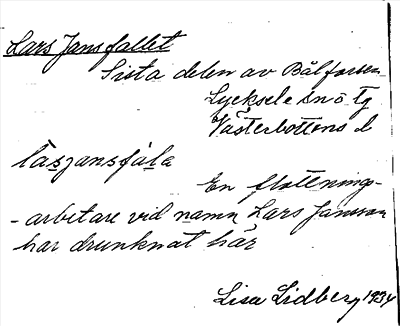 Lars Jansfallet
Sista delen av Bålforsen
Lycksele snö tg
Västerbottens l
läsjansfala
En flottnings-
-arbetare vid namn Lars Jansson
har drunknat här
Lisa Lidberg 1934